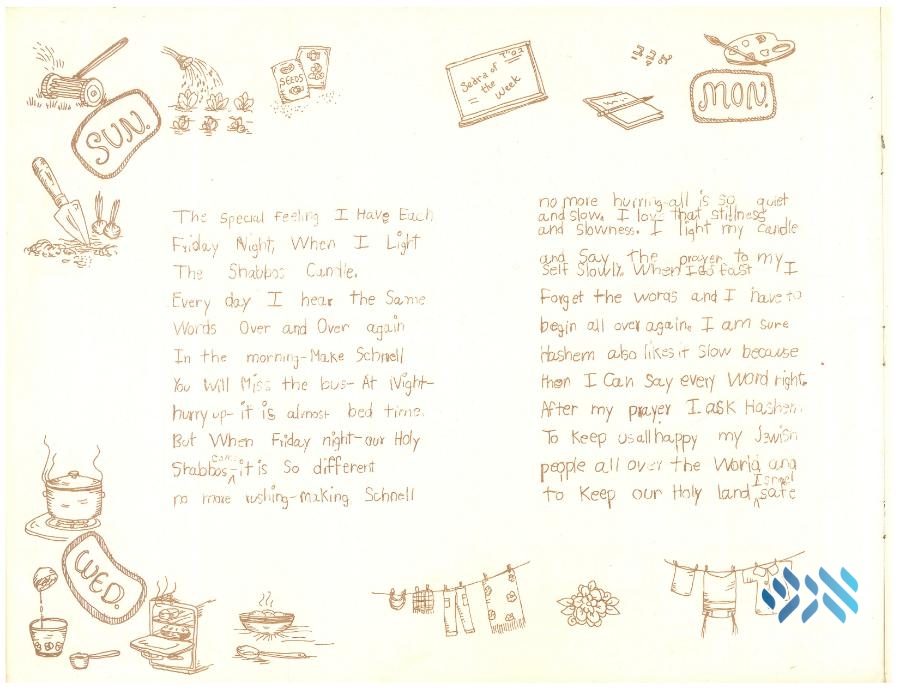 SUN.
SEEDS
Sedra of
the
Week
MON.
The special feeling I Have Each
Friday Night, When I Light
The Shabbos Candle.
Every day I hear the Same
Words Over and Over again
In the morning-Make Schnell
You Will Miss the bus- At Night-
hurry up- it is almost bed time.
But When Friday night-our Holy
Shabbos comes-it is So different
no more rushing-making Schnell
no more hurring-all is so quiet
and slow. I love that stillness
and slowness. I light my candle
and Say The prayer to my
self Slowly. When I go fast I
Forget the words and I have to
begin all over again. I am sure
Hashem also likes it Slow because
then I Can Say every Word right.
After my prayer I ask Hashem
To Keep us all happy my Jewish
people all over the World and
to Keep our Holy land Isreal safe
WED.
אנש